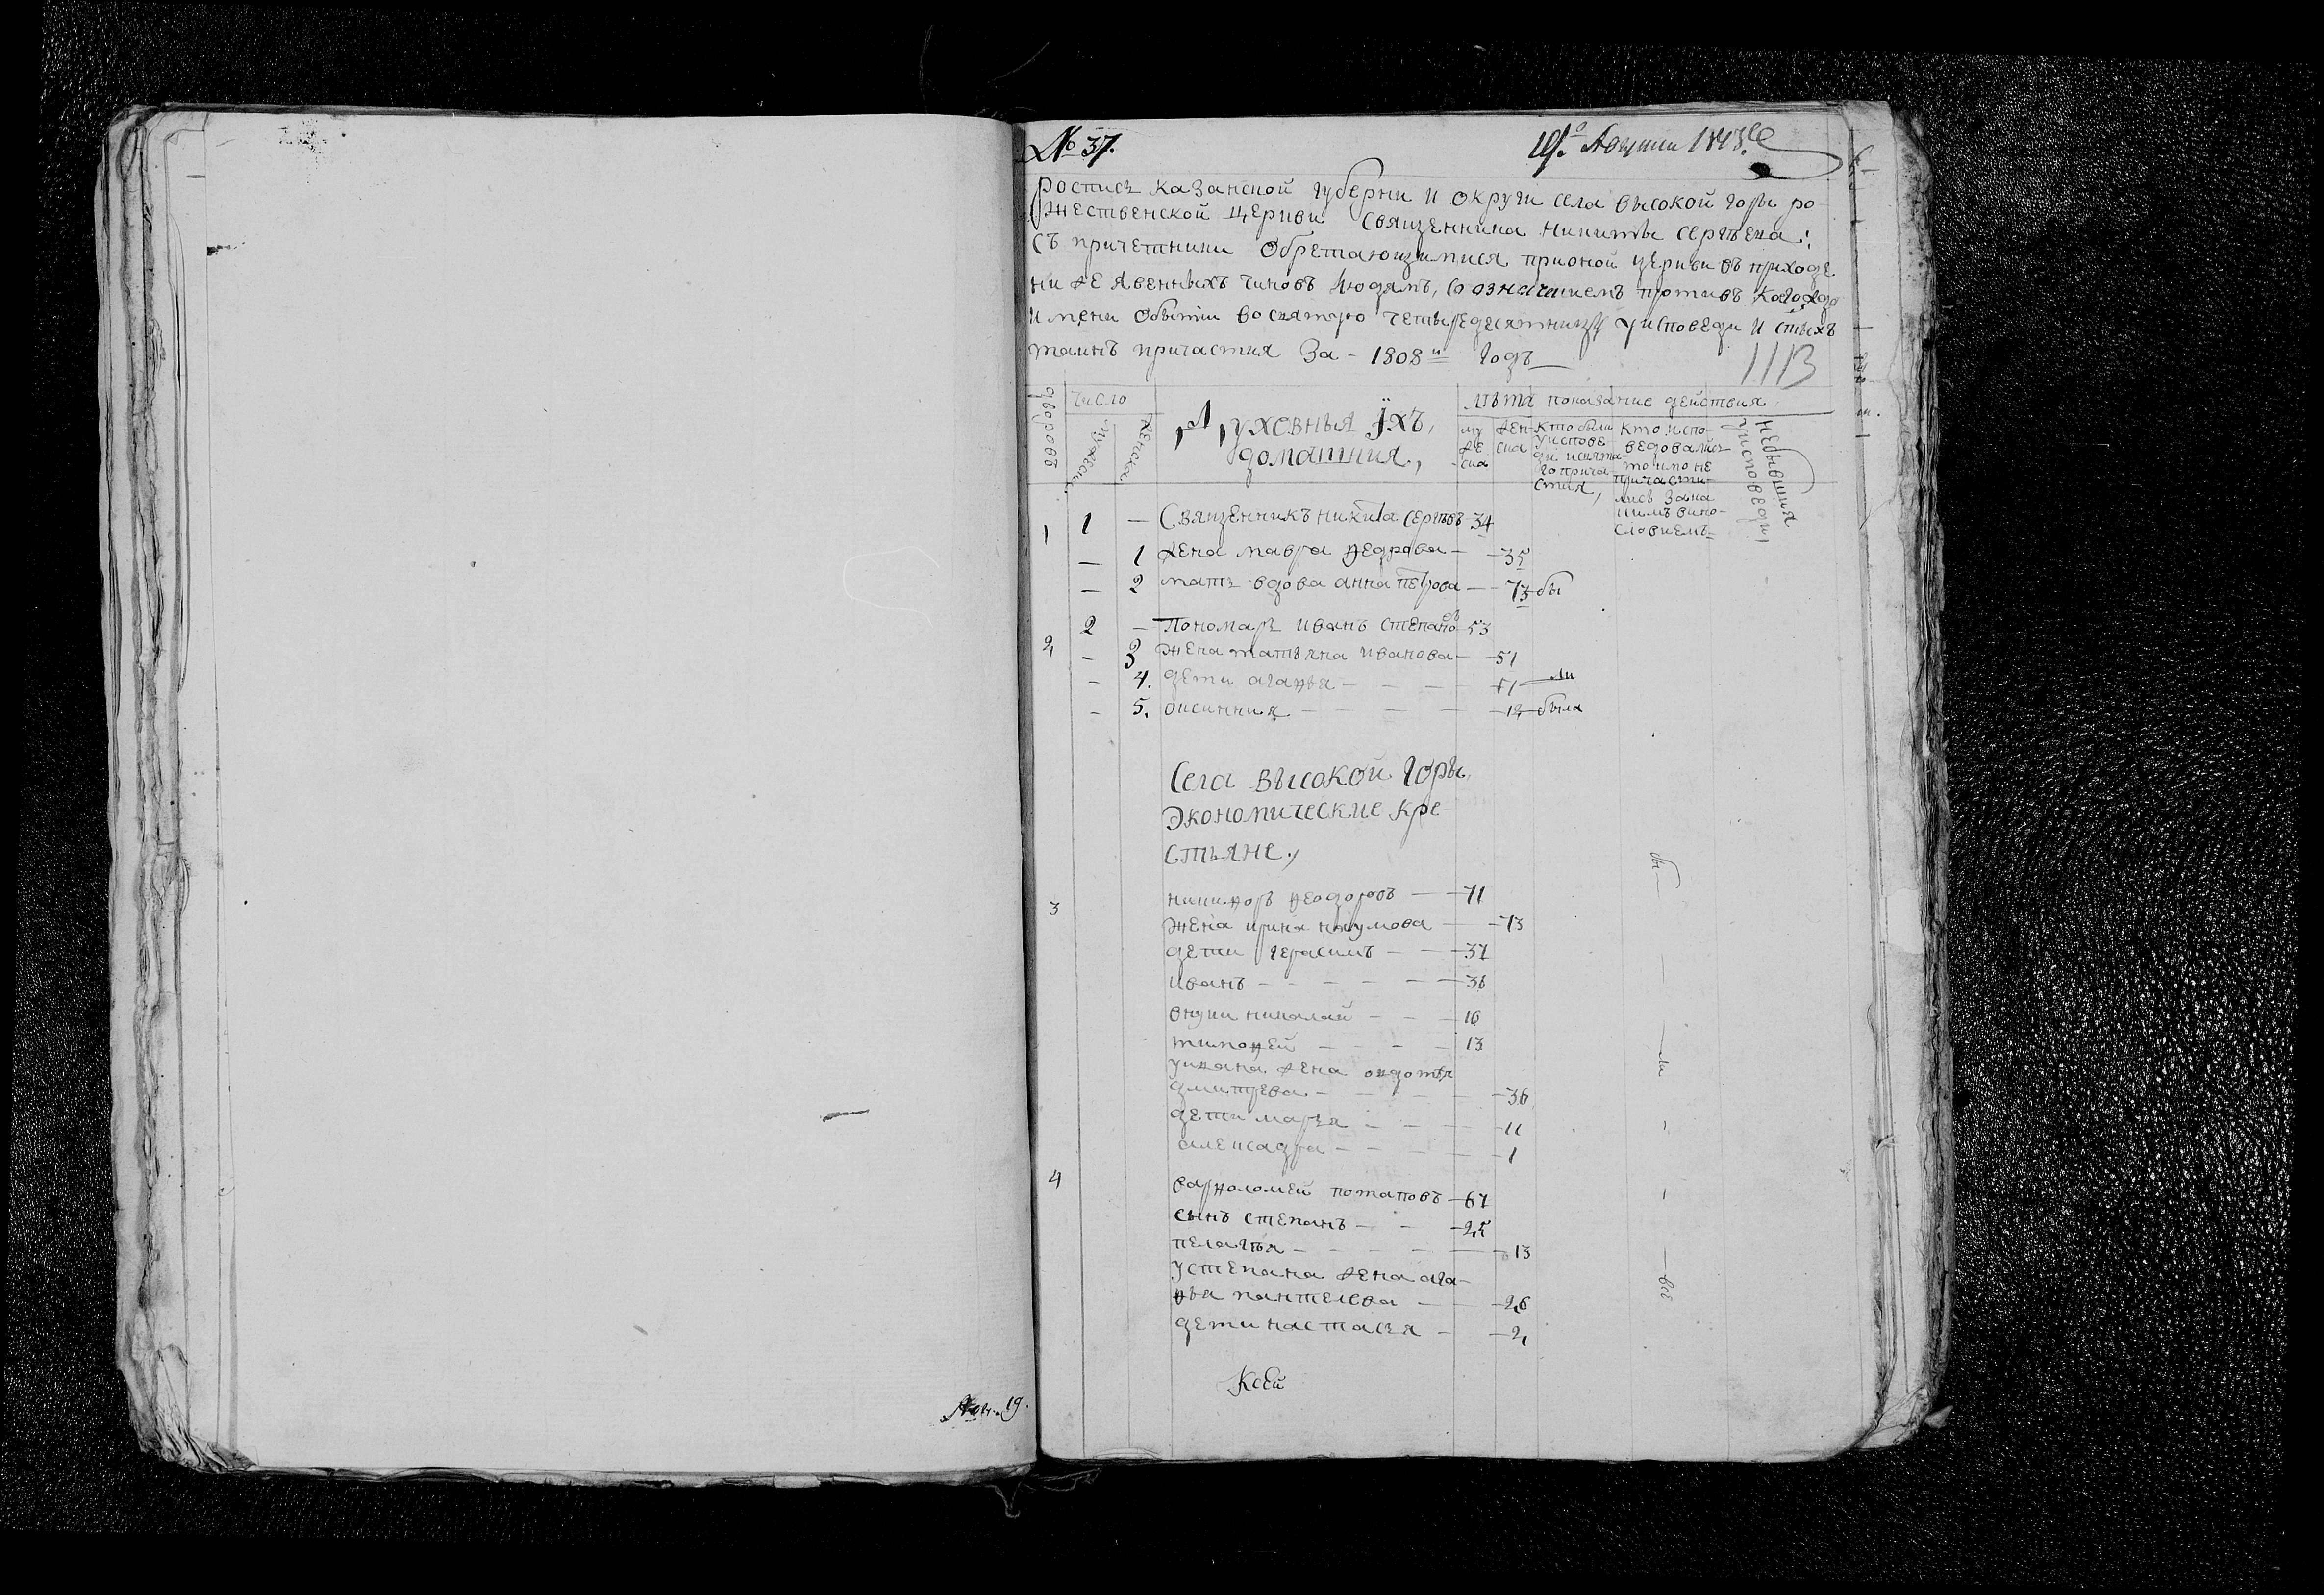 № 37.
роспись казанской губерни и округи села высокой горы ро-
жественской церкви священника никиты сергѣева
съ причетники обретающимися прионой церкви въ приходе
ниже явенныхъ чиновъ людямъ, со означениемъ противъ когождо
имени обытии восвятую четыредесятницу уисповеди и стыхъ
таинъ причастия За - 1808й годъ
1113
дворовъ
число
мужеска
женска
духовныя ихъ,
домашния,
лѣта
показание действия
му
же
ска
жен
ска
кто были
уиспове
ди исвята
го прича
стия,
кто испо-
ведовались
токмо не
причасти-
лись зака
кимъ вино-
словиемъ
небывшия
уисповеди
1 1 — Священникъ никита сергѣевъ 34
— 1 жена мавра федрова — — 35
— 2 мать вдова анна петрова — — 73 бы
2 2 — Пономарь иванъ степановъ 53
— 3 жена татьяна иванова — — 51
— 4. дети агафья — — — ли
— 5. оксинния — — — — 12 была
Села высокой горы
Экономические кре
стьяне,
бы
3 никифоръ феодоровъ — 71
жена ирина наумова — 73
дети герасимъ — — 37
иванъ — — — — — 36
внуки николай — — — 16
тимофей — — — — 13
ли
уивана жена овдотья
дмитрева — — — — 36
дети марья — — — 11
алексадра — — — — 1
4 варфоломей потаповъ — 67
сынъ степанъ — — 25
пелагѣя — — — — — 13
устепана жена ага-
фья пантелева — — 26
все
дети настасья — — 2
19.